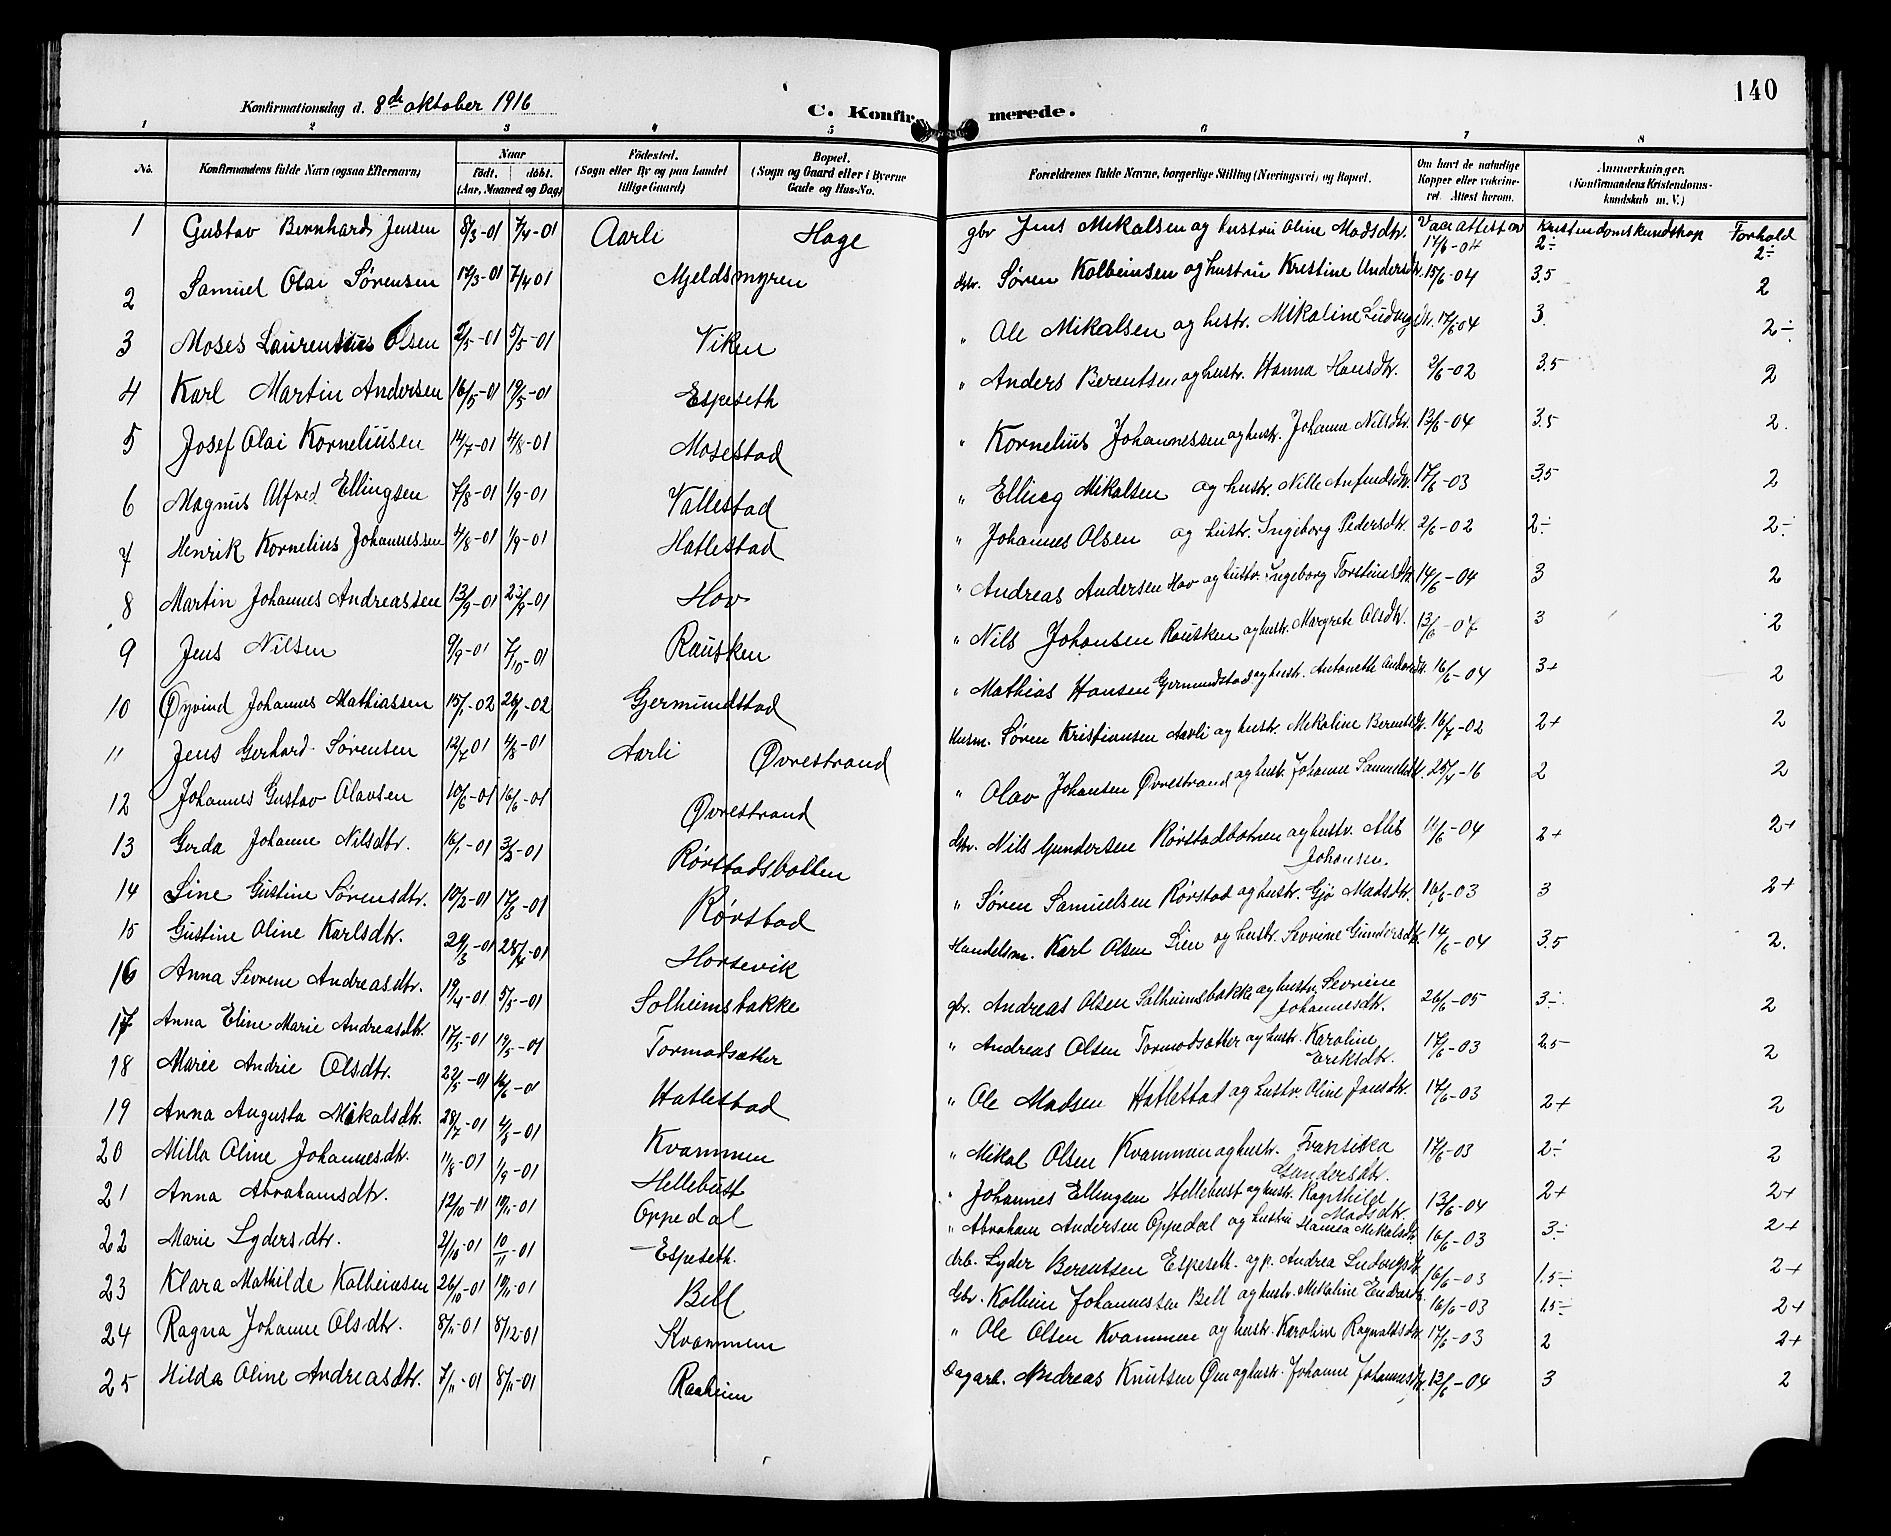 140
Konfirmationsdag d. 8de oktober 1916
C. Konfirmerede.
1 2 3 4 5 6 7 8
No. Konfirmandens fulde Navn (ogsaa Efternavn) Naar født. døbt. (Aar, Maaned og Dag) Fødested. (Sogn eller By og paa Landet tillige Gaard) Bopæl. (Sogn og Gaard eller i Byerne Gade og Hus-No. Forældrenes fulde Navne, borgerlige Stilling (Næringsvei) og Bopæl. Om havt de naturlige Kopper eller vakcineret. Attest herom. Anmerkninger. (Konfirmandens Kristendomskundskab m. V.)
Kristendomskundskap Forhold
1 Gustav Bernhard Jensen 8/3-01 7/4-01 Aarli Hage gbr Jens Mikalsen og hustru Oline Madsdtr. Vacc attest av 17/6-04 2÷ 2÷
2 Samuel Olai Sørensen 12/3-01 7/4 01 Mjeldsmyren gbr. Søren Kolbeinsen og hustru Kristine Andersdtr. 15/6-04 3.5 2
3 Moses Laurentius Olsen 2/5-01 5/5-01 Viken " Ole Mikalsen og hustr. Mikaline Ludvigsdtr. 17/6 04 3. 2÷
4 Karl Martin Andersen 16/5-01 19/5-01 Espeseth " Anders Berentsen og hustr. Hanna Hansdtr. 2/6-02 3.5 2
5 Josef Olai Korneliusen 14/7-01 4/8-01 Mosestad " Kornelius Johannessen og hustr. Johanne Nilsdtr. 13/6-04 3.5 2.
6 Magnus Alfred Ellingsen 7/8-01 1/9-01 Vallestad " Elling Mikalsen og hustr. Nille Anfindsdtr. 17/6-03 3.5 2
7 Henrik Kornelius Johannessen 4/8-01 1/9-01 Hatlestad " Johannes Olsen og hustr. Ingeborg Pedersdtr. 2/6-02 2÷ 2÷
8 Martin Johannes Andreassen 13/9-01 22/9-01 Hov " Andreas Andersen Hov og hustr. Ingeborg Torstinsdtr. 14/6-04 3 2
9 Jens Nilsen 9/9-01 7/10-01 Rausken " Nils Johansen Rausken og hustr. Margrete Olsdtr. 13/6-07 3 2
10 Øyvind Johannes Mathiassen 15/1-02 26/1-02 Germundstad " Mathias Hansen Germundstad og hustr. Antonette Andersdtr. 16/6-04 3+ 2
11 Jens Gerhard Sørensen 12/7 01 4/8-01 Aarli Øvrestrand Husm. Søren Kristiansen Aarli og hustr. Mikaline Berentsdtr. 16/7-02 2+ 2
12 Johannes Gustav Olavsen 10/6-01 16/6-01 Øvrestrand " Olav Johansen Øvrestrand og hustr. Johanne Samuelsdtr. 25/4-16 2 2
13 Gerda Johanne Nilsdtr. 16/1-01 3/3-01 Rørstadsbotten Gbr. Nils Gundersen Rørstadbotnen og hustr. Alet Johansen. 11/6-04 2+ 2+
14 Line Gustine Sørensdtr. 10/2-01 17/3-01 Rørstad " Søren Samuelsen Rørstad og hustr. Gjø Madsdtr. 16/6-03 3 2+
15 Gustine Oline Karlsdtr. 24/3-01 28/4-01 Horsevik Handelsm. Karl Olsen Lien og hustr. Sevrine Gundersdtr. 14/6-04 3.5 2.
16 Anna Sevrene Andreasdtr. 19/4-01 5/5-01 Solheimsbakke gbr. Andreas Olsen Solheimsbakke og hustr. Sevrine Johannesdtr. 26/6-05 3÷ 2
17 Anna Eline Marie Andreasdtr. 17/5-01 19/5-01 Tormodsætter " Andreas Olsen Tormodsætter og hustr. Karoline Eriksdtr. 17/6-03 2.5 2
18 Marie Andrie Olsdtr. 22/5-01 16/6-01 Hatlestad " Ole Madsen Hatlestad og hustr. Oline Jansdtr. 17/6-03 2+ 2
19 Anna Augusta Mikalsdtr. 28/7-01 4/8-01 Kvammen " Mikal Olsen Kvammen og hustr. Fransiska Gundersdtr. 17/6-03 2÷ 2
20 Milla Oline Johannesdtr. 11/8-01 1/9-01 Hellebust " Johannes Ellingen Hellebust og hustr. Ragnhild Madsdtr. 13/6-04 2+ 2+
21 Anna Abrahamsdtr. 12/10-01 10/11-01 Oppedal " Abraham Andersen Oppedal og hustru Hansea Mikalsdtr. 16/6-03 3÷ 2+
22 Marie Lydersdtr. 2/10-01 10/11-01 Espeseth. Lyder Berentsen Espeseth og p. Andrea Ludvigsdtr. 16/6-03 1.5÷ 2+
23 Klara Mathilde Kolbeinsen 26/10-01 10/11-01 Bell Gbr. Kolbein Johannessen Bell og hustr. Mikaline Endresdtr. 16/6-03 1.5÷ 2+
24 Ragna Johanne Olsdtr. 8/11-01 8/12-01 Kvammen " Ole Olsen Kvammen og hustr. Karoline Ragnaldsdtr. 17/6-03 2 2+
25 Hilda Oline Andreasdtr. 7/11-01 8/11-01 Raaheim Dagarb. Andreas Knutsen Øen og hustr. Johanne Johannesdtr. 13/6-04 3 2